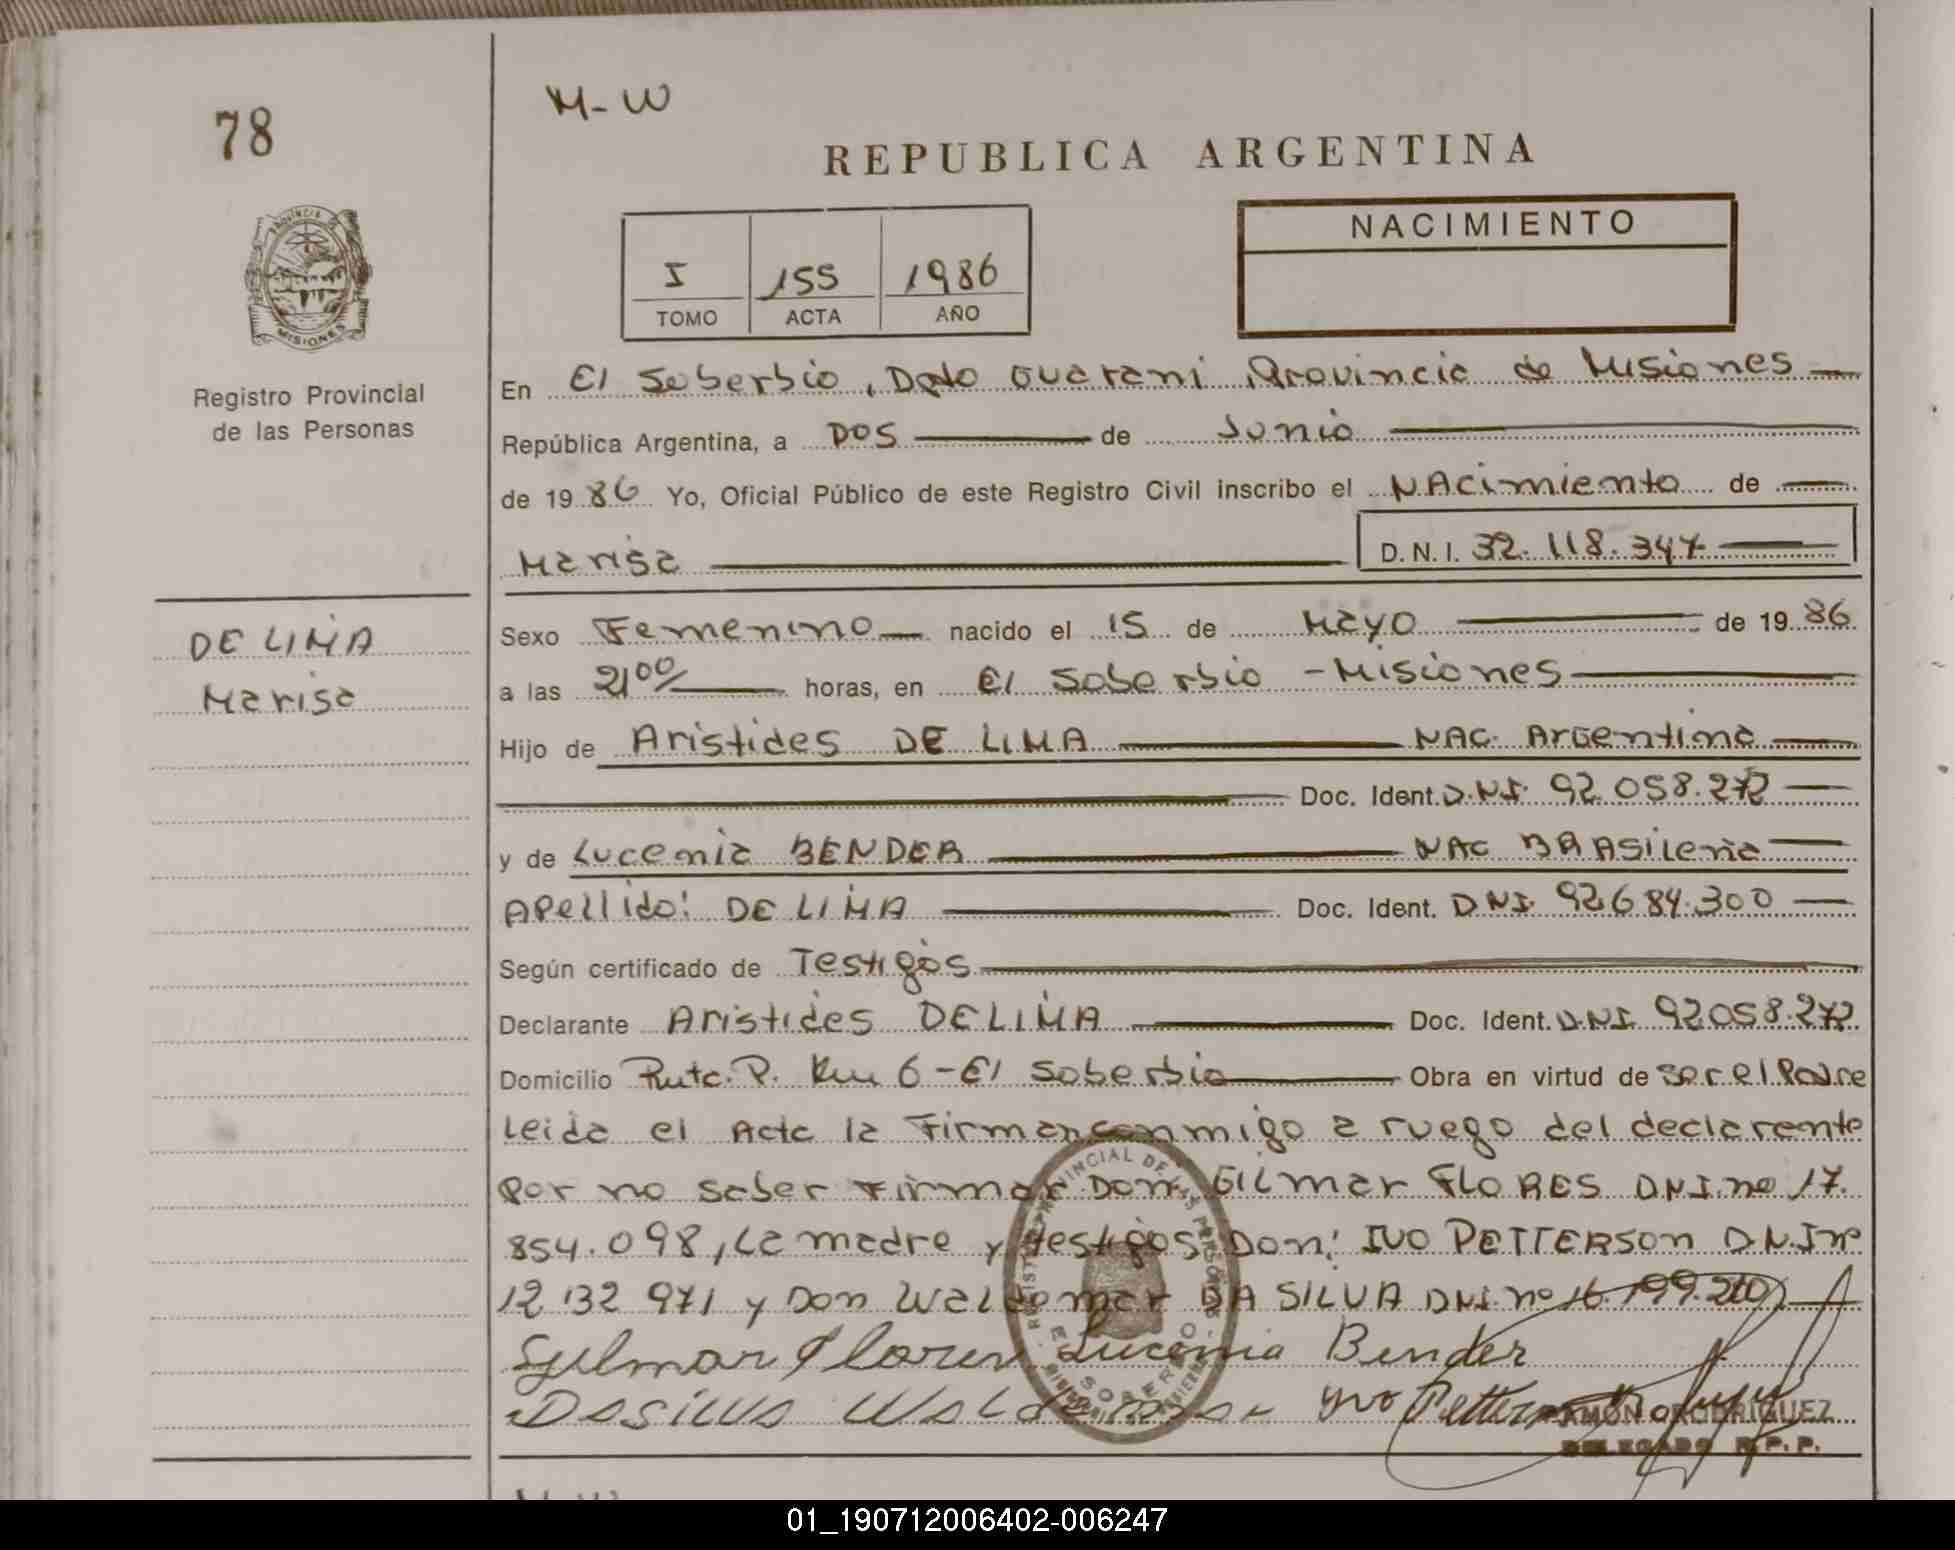 78
M-W
REPUBLICA ARGENTINA
PROVINCIA DE
MISIONES
I 155 1986
TOMO ACTA AÑO
NACIMIENTO
Registro Provincial
de las Personas
En El Soberbio, Dpto Guarani, Provincia de Misiones
República Argentina, a DOS de Junio
de 1986 Yo, Oficial Público de este Registro Civil inscribo el NAcimiento de
Marisa D.N.I. 32.118.347
DE LIMA
Marisa
Sexo Femenino nacido el 15 de Mayo de 1986
a las 21 00/ horas, en El Soberbio - Misiones
Hijo de Aristides DE LIMA NAC. Argentina
Doc. Ident. D.N.I. 92.058.272
y de Lucenia BENDER NAC BRAsileña
Apellido: DE LIMA Doc. Ident. DNI. 92.684.300
Según certificado de Testigos
Declarante Aristides DE LIMA Doc. Ident. D.N.I. 92.058.272
Domicilio Ruta. P. Km 6 - El Soberbio Obra en virtud de ser el Padre
Leida el Acta la Firman conmigo a ruego del declarante
Por no saber Firmar Don. GILmar FLORES D.N.I. no 17.
854.098, La madre y testigos Don: IVO PETTERSON D.N.I nº
12 132 971 y Don Waldemar DA SILVA DNI. nº 16.199.210
Gylmar Flores Lucenia Bender
Dasilva Waldemar Yvo Petterson
RAMON RODRIGUEZ
DELEGADO R.P.P.
01_190712006402-006247